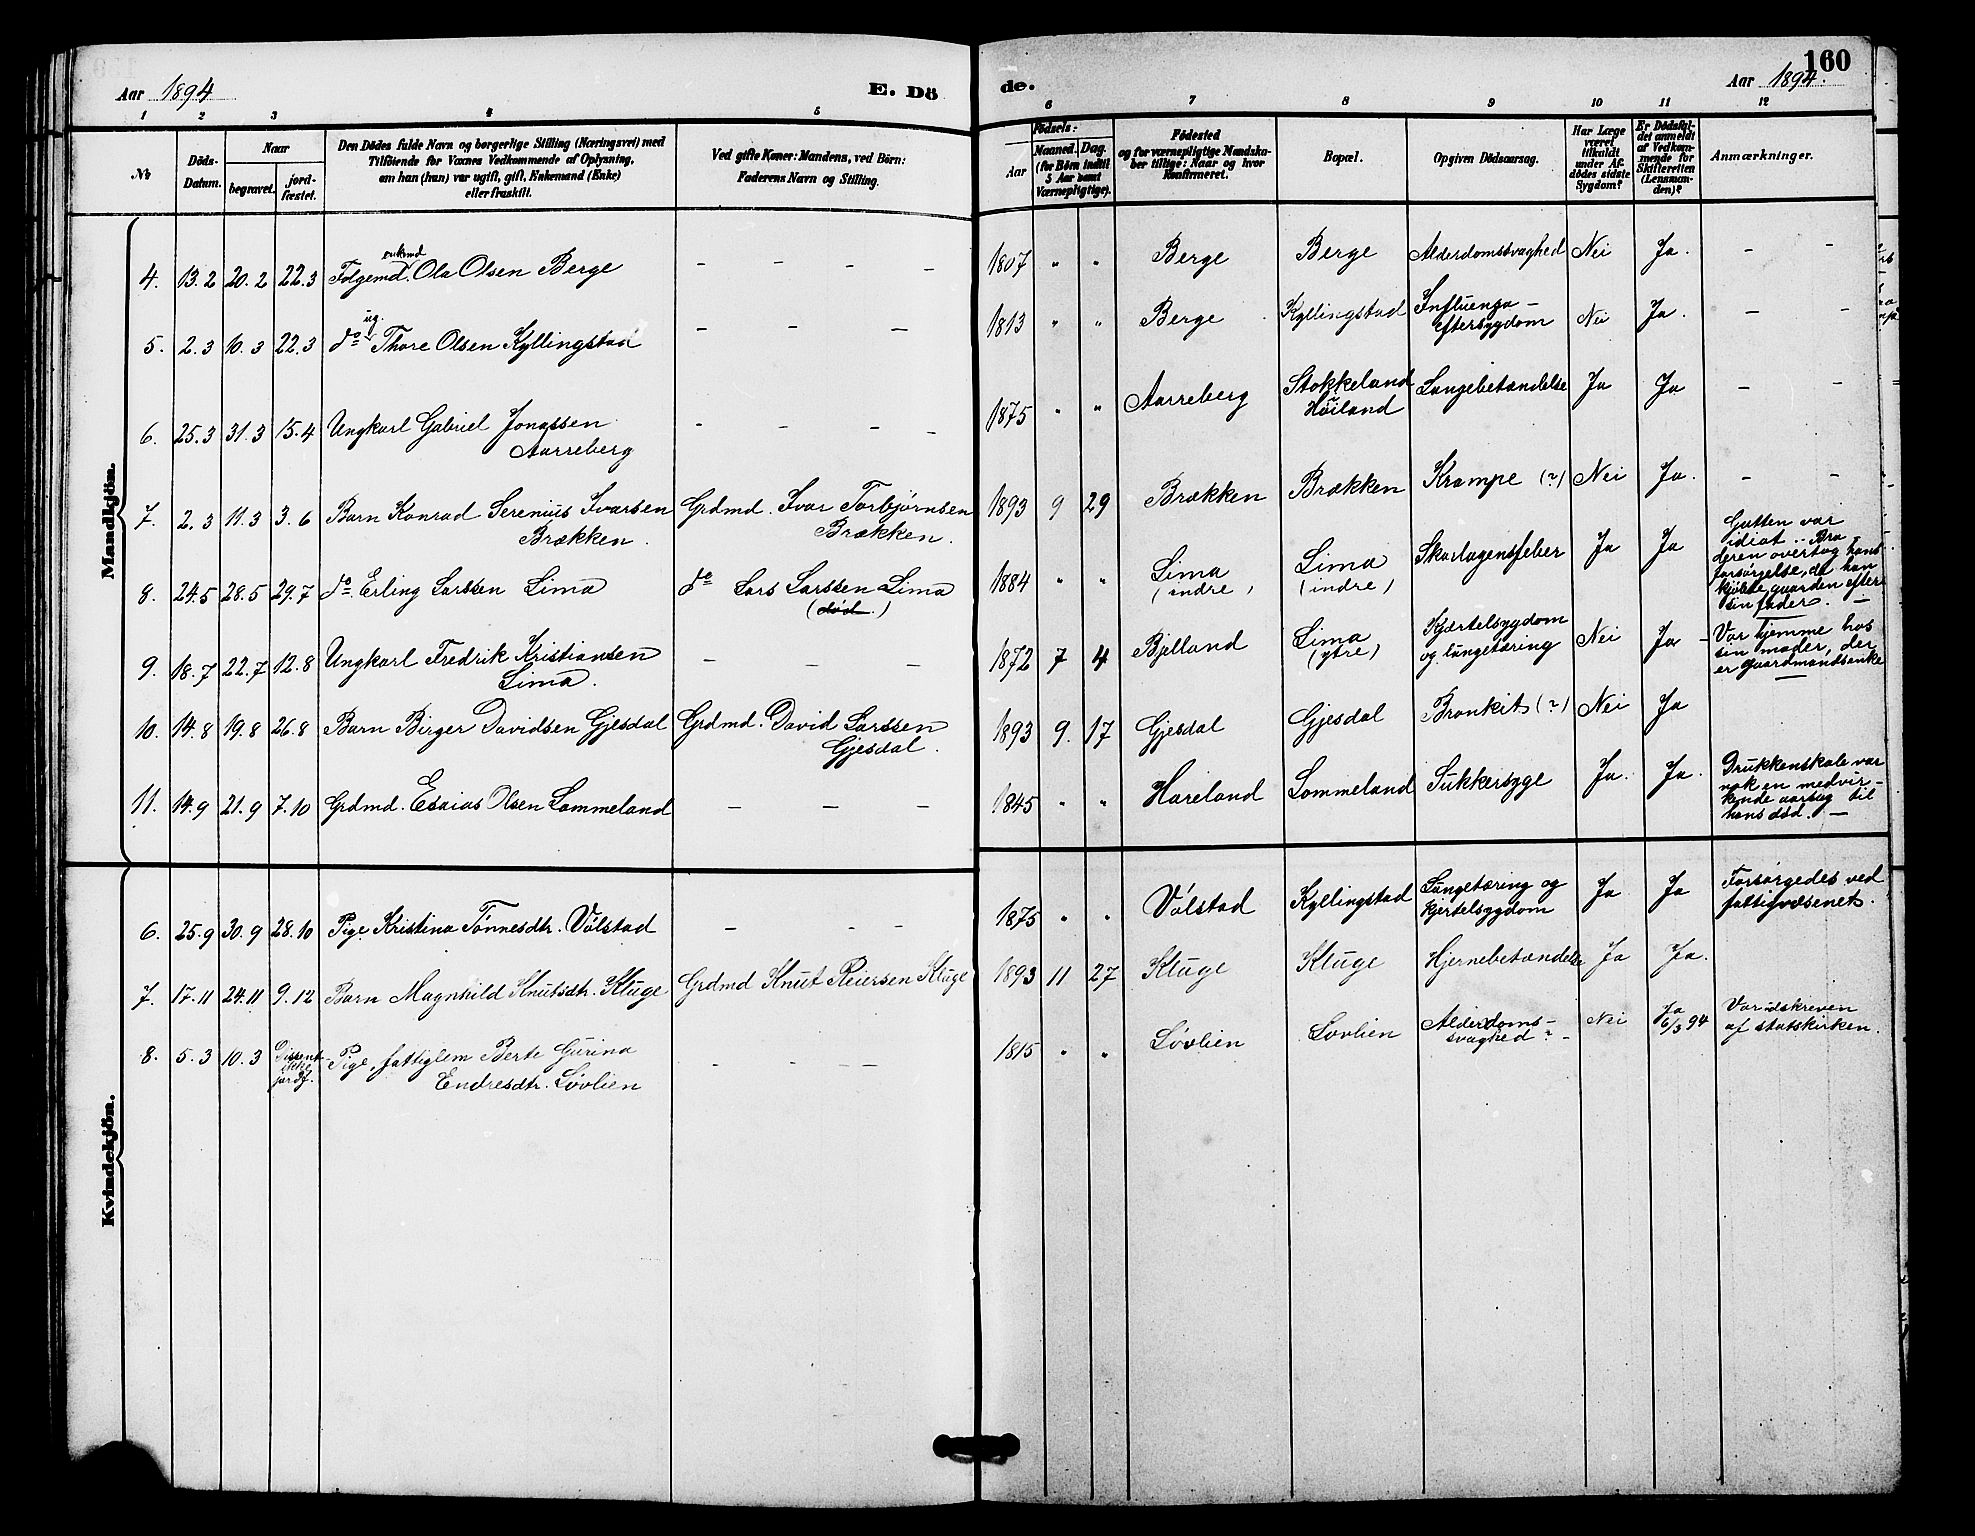 160
Aar 1894
E. Dö
de.
Aar 1894.
1 2 3 4 5 6 7 8 9 10 11 12
№
Döds-
Datum.
Naar
begravet.
jord-
fæstet.
Den Dödes fulde Navn og borgerlige Stilling (Næringsvei) med
Tilföiende for Voxnes Vedkommende af Oplysning,
om han (hun) var ugift, gift, Enkemand (Enke)
eller fraskilt.
Ved gifte Koner: Mandens, ved Börn:
Faderens Navn og Stilling.
Födsels:
Aar
Maaned. Dag.
(for Börn indtil
5 Aar samt
Værnepligtige).
Födested
og for værnepligtige Mandska-
ber tillige: Naar og hvor
Konfirmeret.
Bopæl.
Opgiven Dödsaarsag.
Har Læge
været
tilkaldt
under Af-
dödes sidste
Sygdom?
Er Dödsfal-
det anmeldt
af Vedkom-
mende for
Skifteretten
(Lensman-
den)?
Anmærkninger.
Mandkjön.
enkemd
4. 13.2 20.2 22.3 Folgemd. Ola Olsen Berge – – – – 1807 " " Berge Berge Alderdomssvaghed Nei Ja. – –
ug.
5. 2.3 10.3 22.3 do Thore Olsen Kyllingstad – – – 1813 " " Berge Kyllingstad Influenza –
eftersygdom Nei Ja. – –
6. 25.3 31.3 15.4 Ungkarl Gabriel Jonassen
Aarreberg – – – – 1875 " " Aarreberg Stokkeland
Høiland Lungebetændelse Ja Ja – –
7. 2.3 11.3 3.6 Barn Konrad Serenius Ivarsen
Brækken. Grdmd. Ivar Torbjørnsen
Brækken. 1893 9 29 Brækken Brækken Krampe (?) Nei Ja. – –
8. 24.5 28.5 29.7 do Erling Larssen Lima do Lars Larssen Lima
(død.) 1884 " " Lima
(indre) Lima
(indre) Skarlagensfeber Ja Ja Gutten var
idiot. Bro
deren overtog hans
forsørgelse, da han
kjøbte gaarden efter
sin fader. –
9. 18.7 22.7 12.8 Ungkarl Fredrik Kristiansen
Lima. – – – 1872 7 4 Bjelland Lima
(ytre) Kjærtelsygdom
og lungetæring Nei Ja – Var hjemme hos
sin moder, der
er gaardmandsenke
10. 14.8 19.8 26.8 Barn Birger Davidsen Gjesdal Grdmd. David Larssen
Gjesdal. 1893 9. 17 Gjesdal Gjesdal Bronkit (?) Nei Ja
11. 14.9 21.9 7.10 Grdmd. Esaias Olsen Lommeland – – – 1845 " " Hareland Lommeland Sukkersyge Ja. Ja. Drukkenskab var
nok en medvir-
kende aarsag til
hans død. –
Kvindekjön.
6. 25.9 30.9 28.10 Pige Kristina Tønnesdtr. Vølstad – – – 1875 " " Vølstad Kyllingstad Lungetæring og
kjertelsygdom Ja Ja Forsørgedes ved
fattigvæsenet.
7. 17.11 24.11 9.12 Barn Magnhild Knutsdtr. Kluge Grdmd Knut Reiersen Kluge 1893 11 27 Kluge Kluge Hjernebetændelse Ja Ja.
8. 5.3 10.3 Dissent.
ikke
jordf. Pige, fattiglem Berte Gurina
Endresdtr. Løvlien – – – – 1815 " " Løvlien Løvlien Alderdoms-
svaghed? – Nei Ja
6/3 94 Var udskreven
af statskirken.